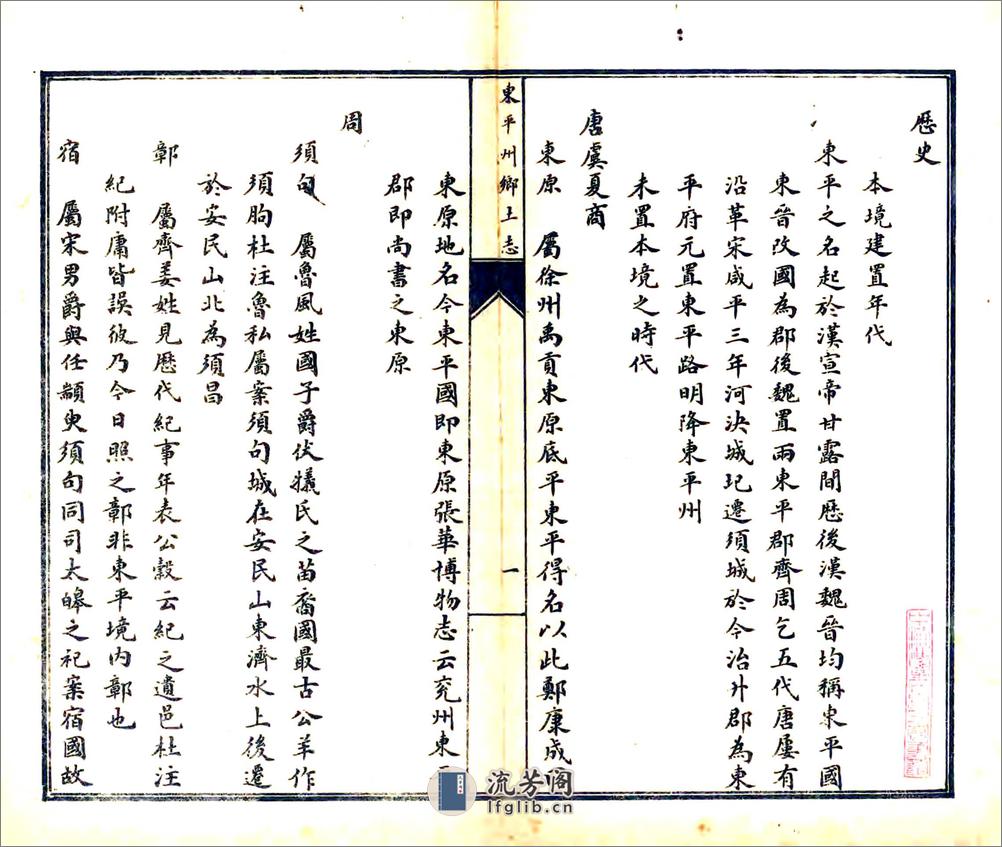 歷史
本境建置年代
東平之名起於漢宣帝甘露間歷後漢魏晉均稱東平國
東晉改國為郡後魏置兩東平郡齊周迄五代唐屢有
沿革宋咸平三年河決城圮遷須城於今治升郡為東
平府元置東平路明降東平州
未置本境之時代
唐虞夏商
東原　屬徐州禹貢東原底平東平得名以此鄭康成
東平州鄉土志
一
東原地名今東平國即東原張華博物志云兖州東
郡即尚書之東原
周
須句　屬魯風姓國子爵伏犧氏之苗裔國最古公羊作
須朐杜注魯私屬案須句城在安民山東濟水上後遷
於安民山北為須昌
鄣　屬齊姜姓見歷代紀事年表公穀云紀之遺邑杜注
紀附庸皆誤彼乃今日照之鄣非東平境內鄣也
宿　屬宋男爵與任顓臾須句同司太皞之祀案宿國故
流芳阁
lfglib.cn